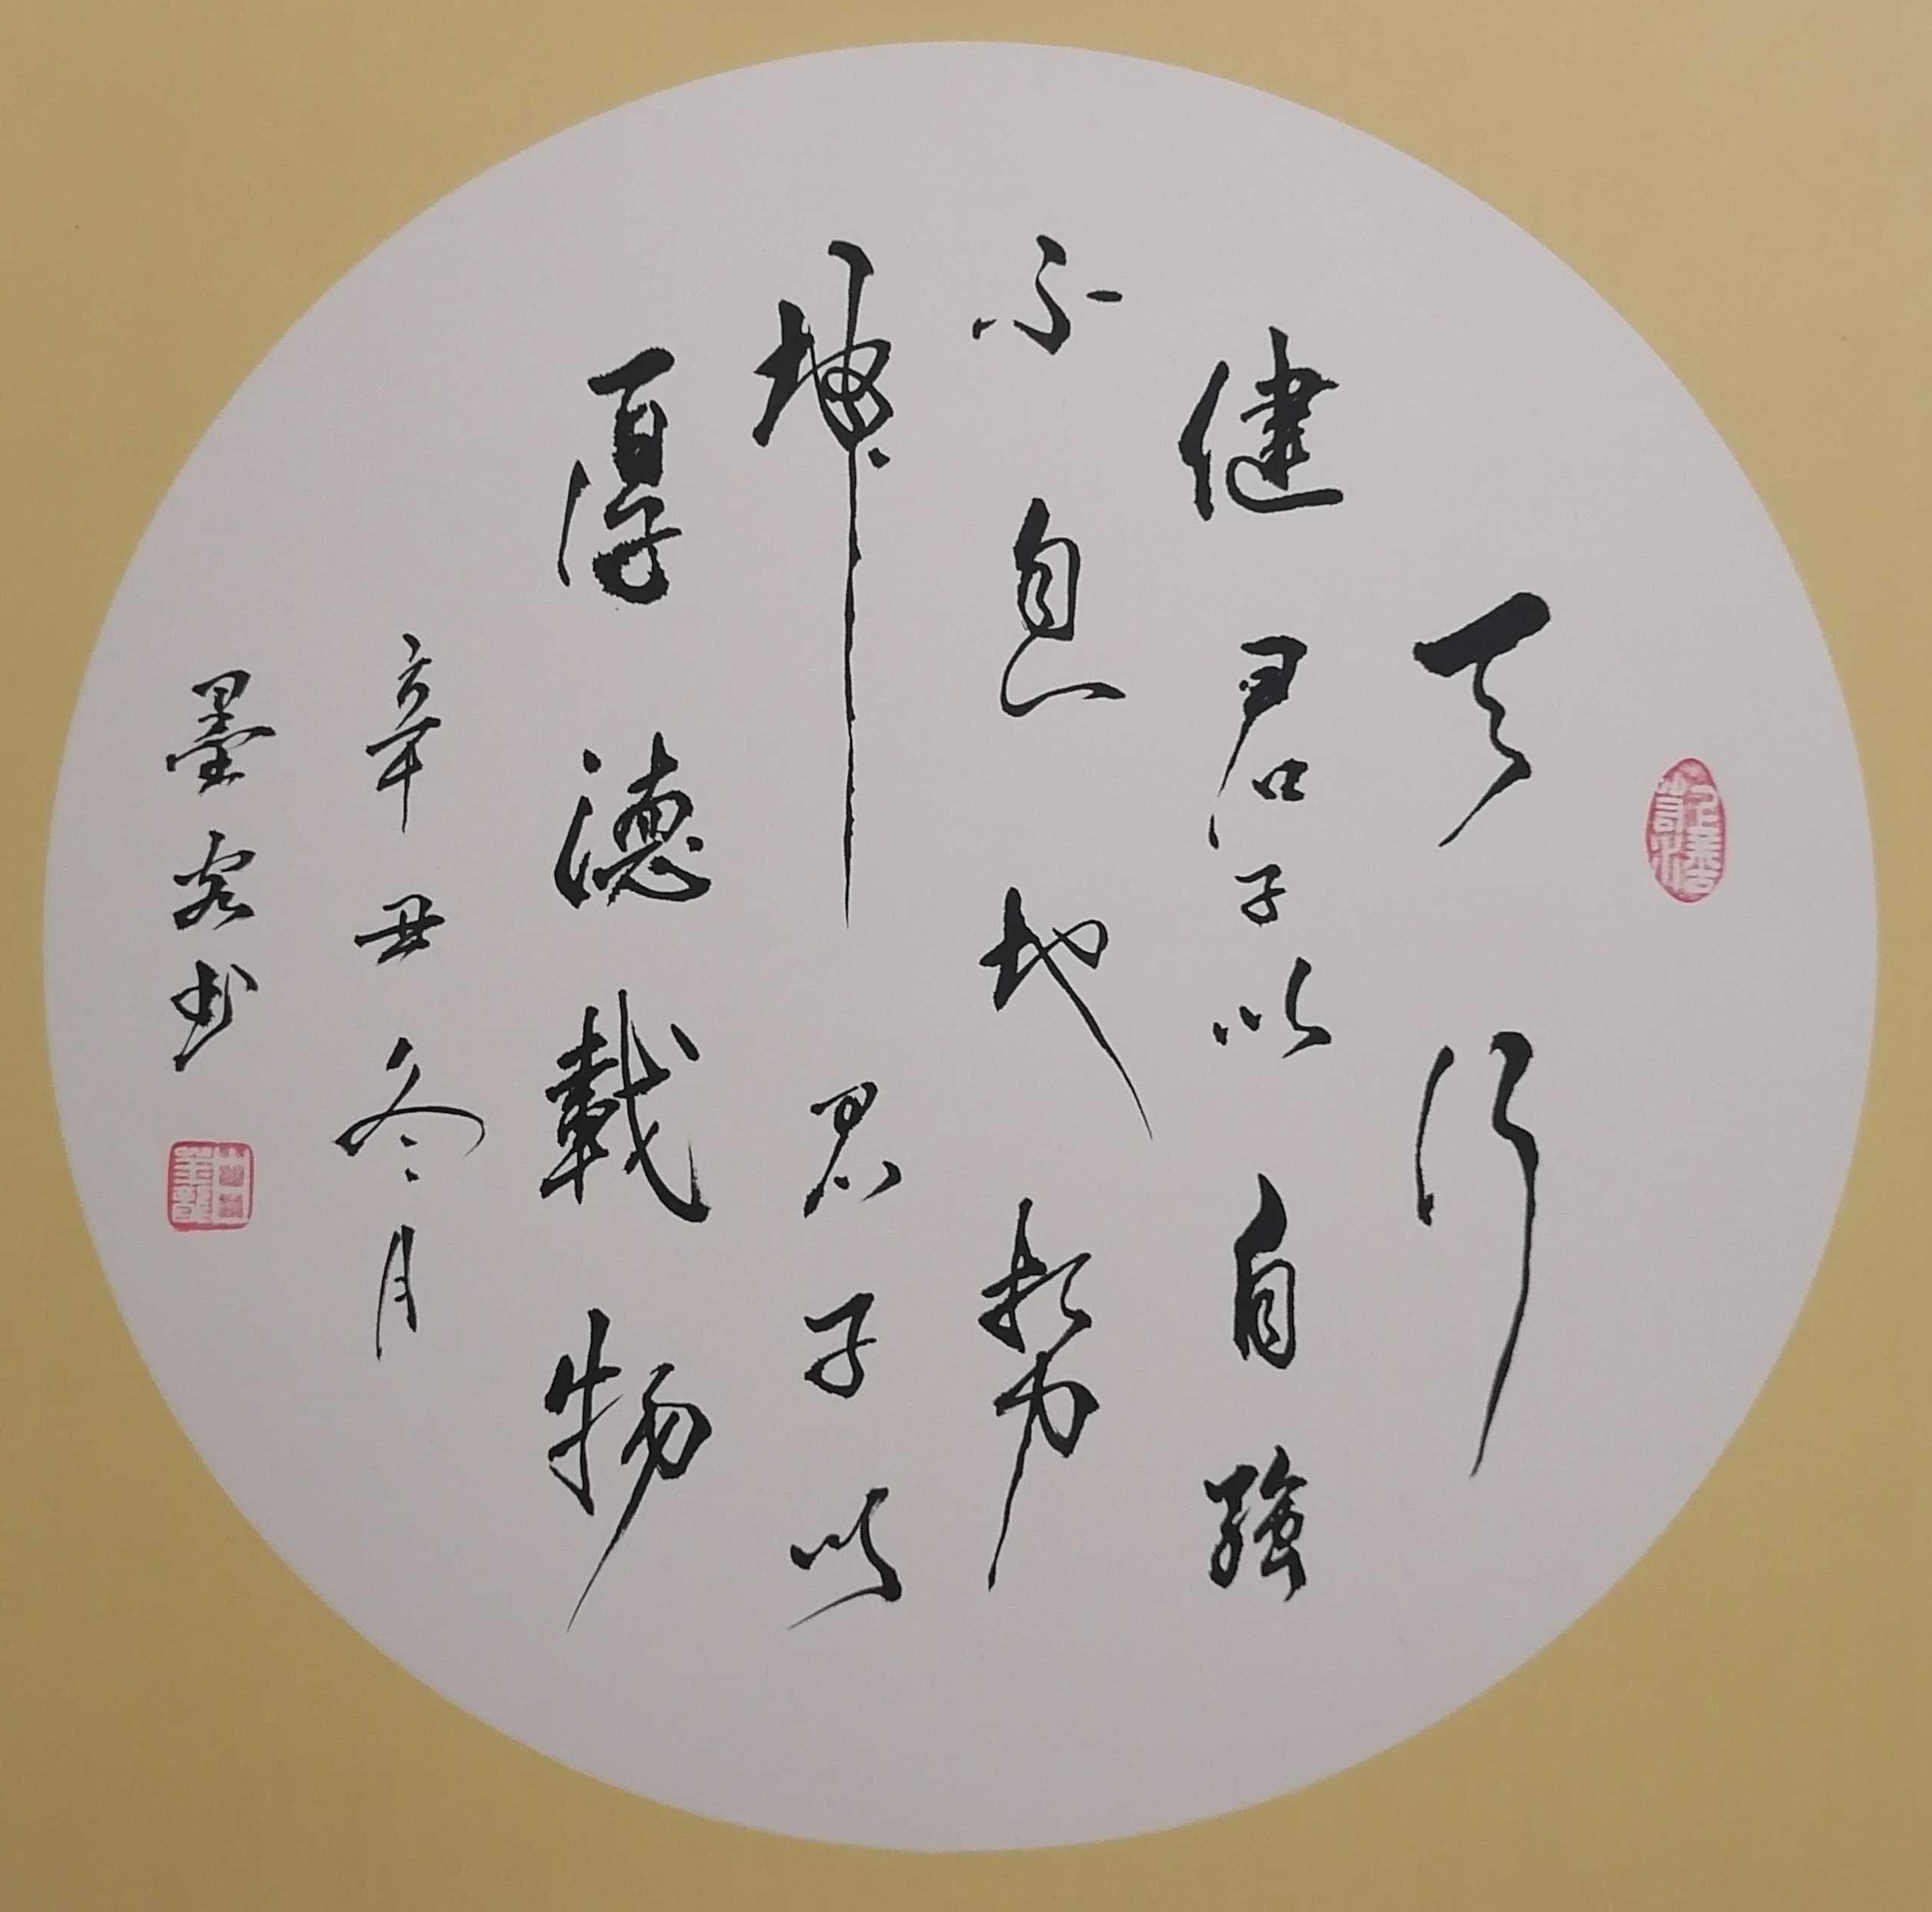 天行
健君子以自強
不息地勢
坤君子以
厚德載物
辛丑冬月
墨客书